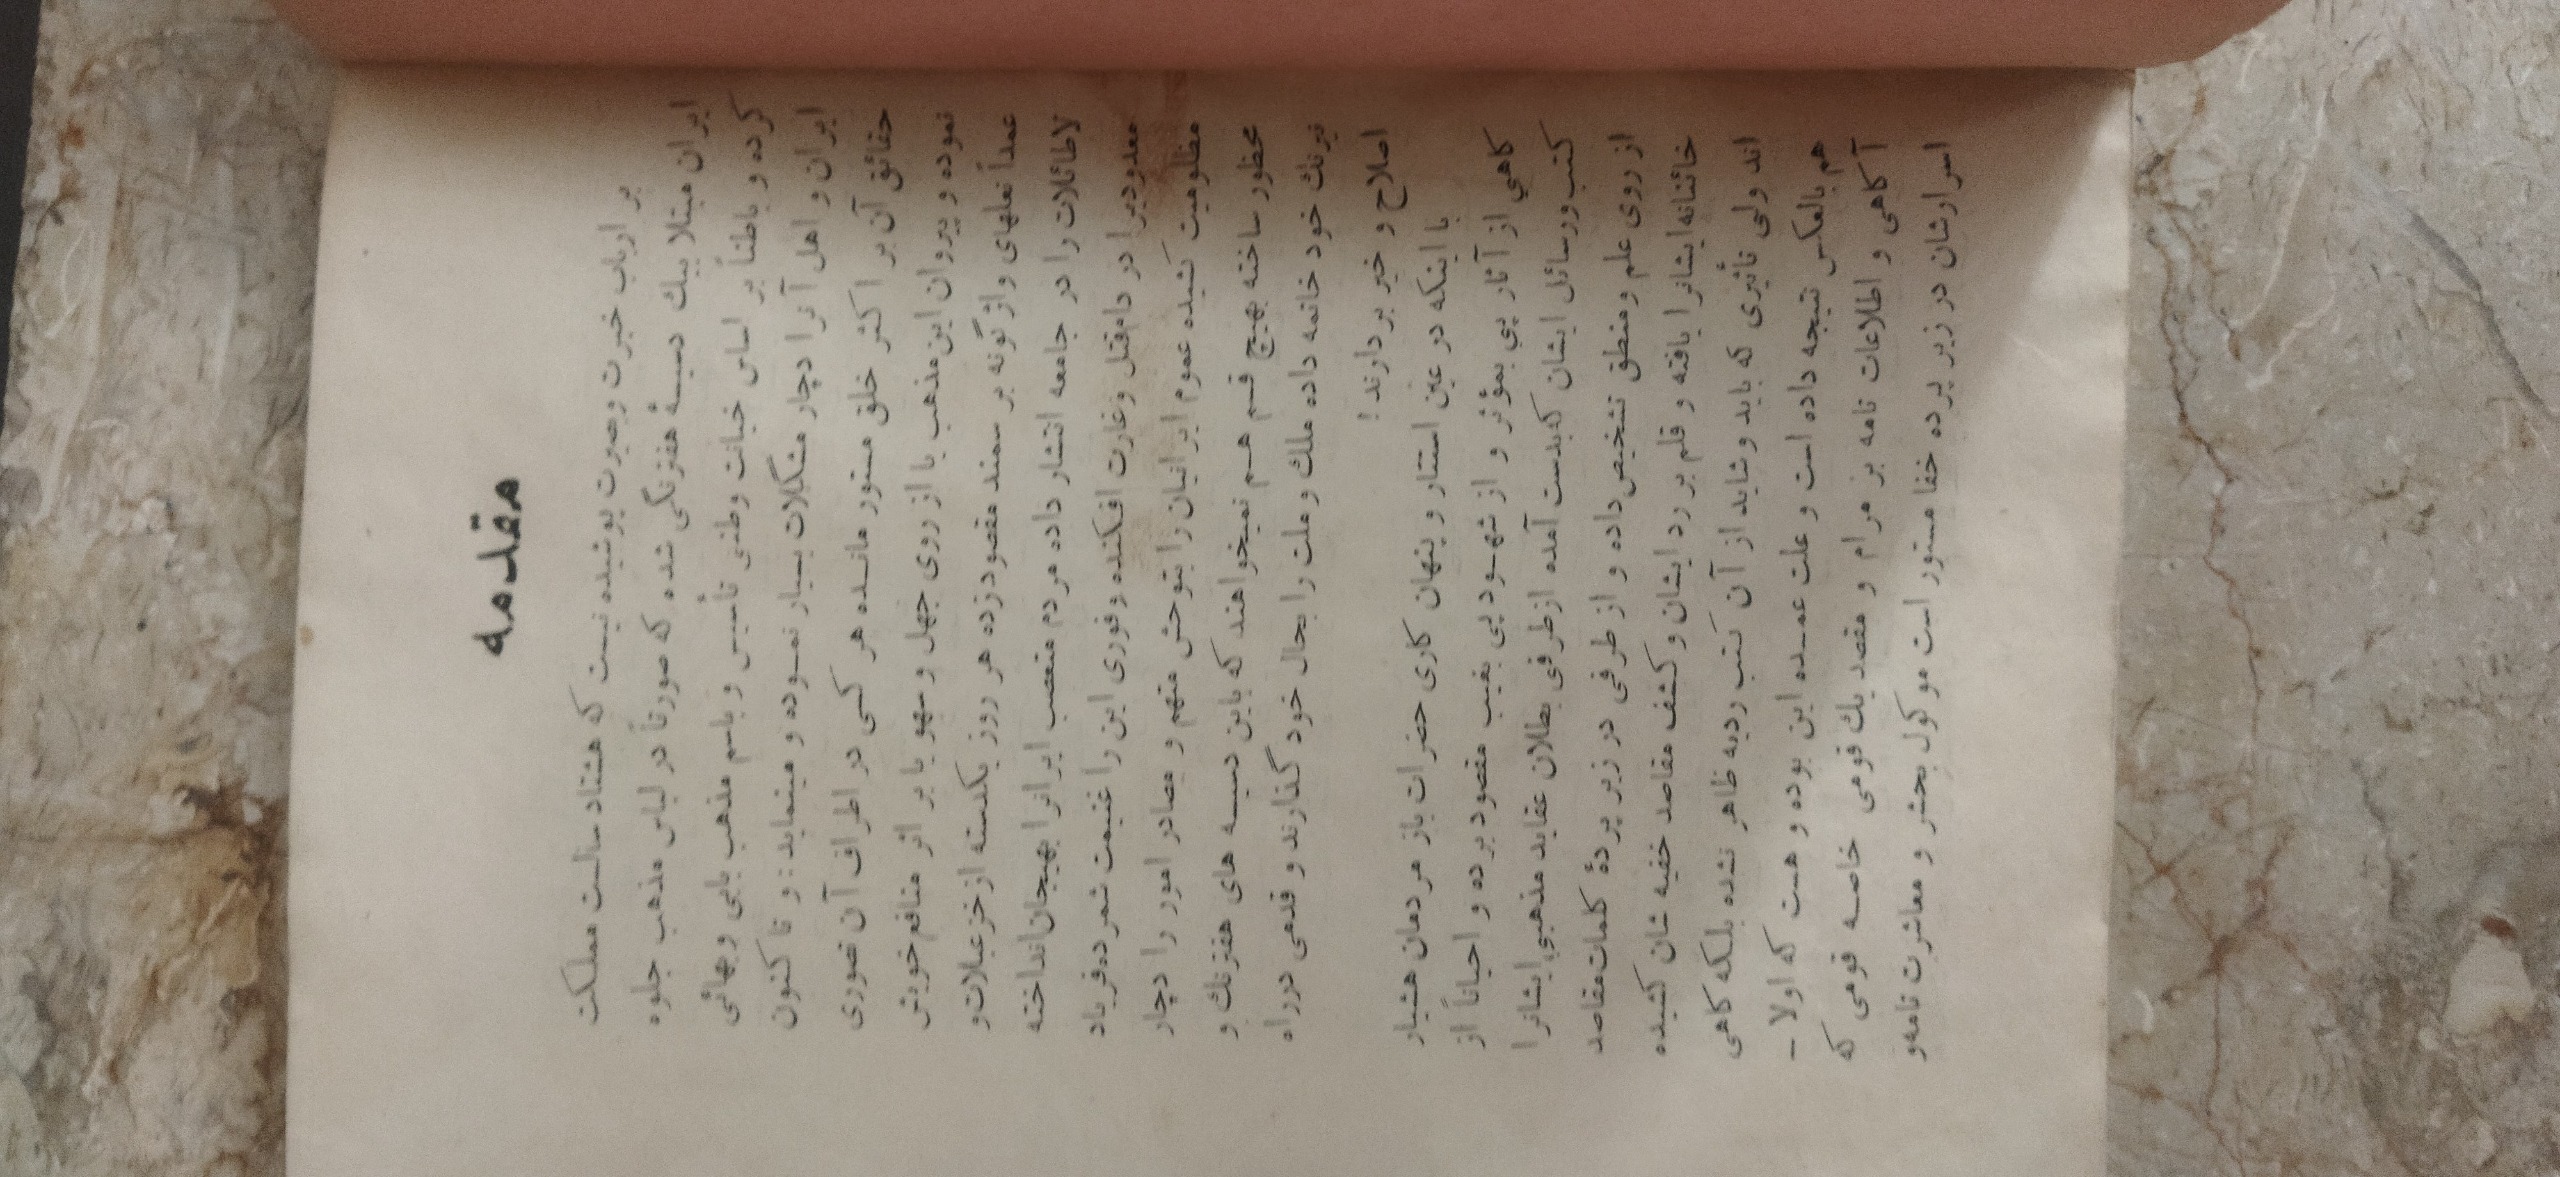 مقدمه
بر ارباب خبرت وبصیرت پوشیده نیست که هشتاد سالست مملکت
ایران مبتلا بیك دسیسهٔ هفترنگی شده که صورتاً در لباس مذهب جلوه
کرده و باطناً بر اساس خیانت وطنی تأسیس و باسم مذهب بابی وبهائی
ایران و اهل آنرا دچار مشکلات بسیار نموده و مینماید: و تا کنون
حقائق آن بر اکثر خلق مستور مانده هر کسی در اطراف آن تصوری
نموده و پیروان این مذهب یا از روی جهل و سهو یا بر اثر منافع خویش
عمداً نعلهای واژگونه بر سمند مقصود زده هر روز یکدسته از خزعبلات و
لاطائلات را در جامعه انتشار داده مردم متعصب ایرانرا بهیجان انداخته
معدودیرا در دام قتل وغارت افکنده و فوری این را غنیمت شمرده فریاد
مظلومیت کشیده عموم ایرانیان را بتوحش متهم و مصادر امور را دچار
محظور ساخته بهیچ قسم هم نمیخواهند که باین دسیسه های هفترنك و
نیرنك خود خاتمه داده ملك وملت را بحال خود گذارند و قدمی درراه
اصلاح و خیر بردارند!
با اینکه در عین استتار و پنهان کاری حضرات باز مردمان هشیار
گاهی از آثار پی بمؤثر و از شهود پی بغیب مقصود برده و احیاناً از
کتب ورسائل ایشان که بدست آمده ازطرفی بطلان عقاید مذهبی ایشانرا
از روی علم ومنطق تشخیص داده و از طرفی در زیر پردهٔ کلمات مقاصد
خائنانه ایشانرا یافته و قلم بر رد ایشان و کشف مقاصد خفیه شان کشیده
اند ولی تأثیری که باید وشاید از آن کتب ردیه ظاهر نشده بلکه گاهی
هم بالعکس نتیجه داده است و علت عمده این بوده و هست که اولا -
آگاهی و اطلاعات تامه بر مرام و مقصد یك قومی خاصه قومی که
اسرارشان در زیر پرده خفا مستور است موکول بحشر و معاشرت تامه‌و